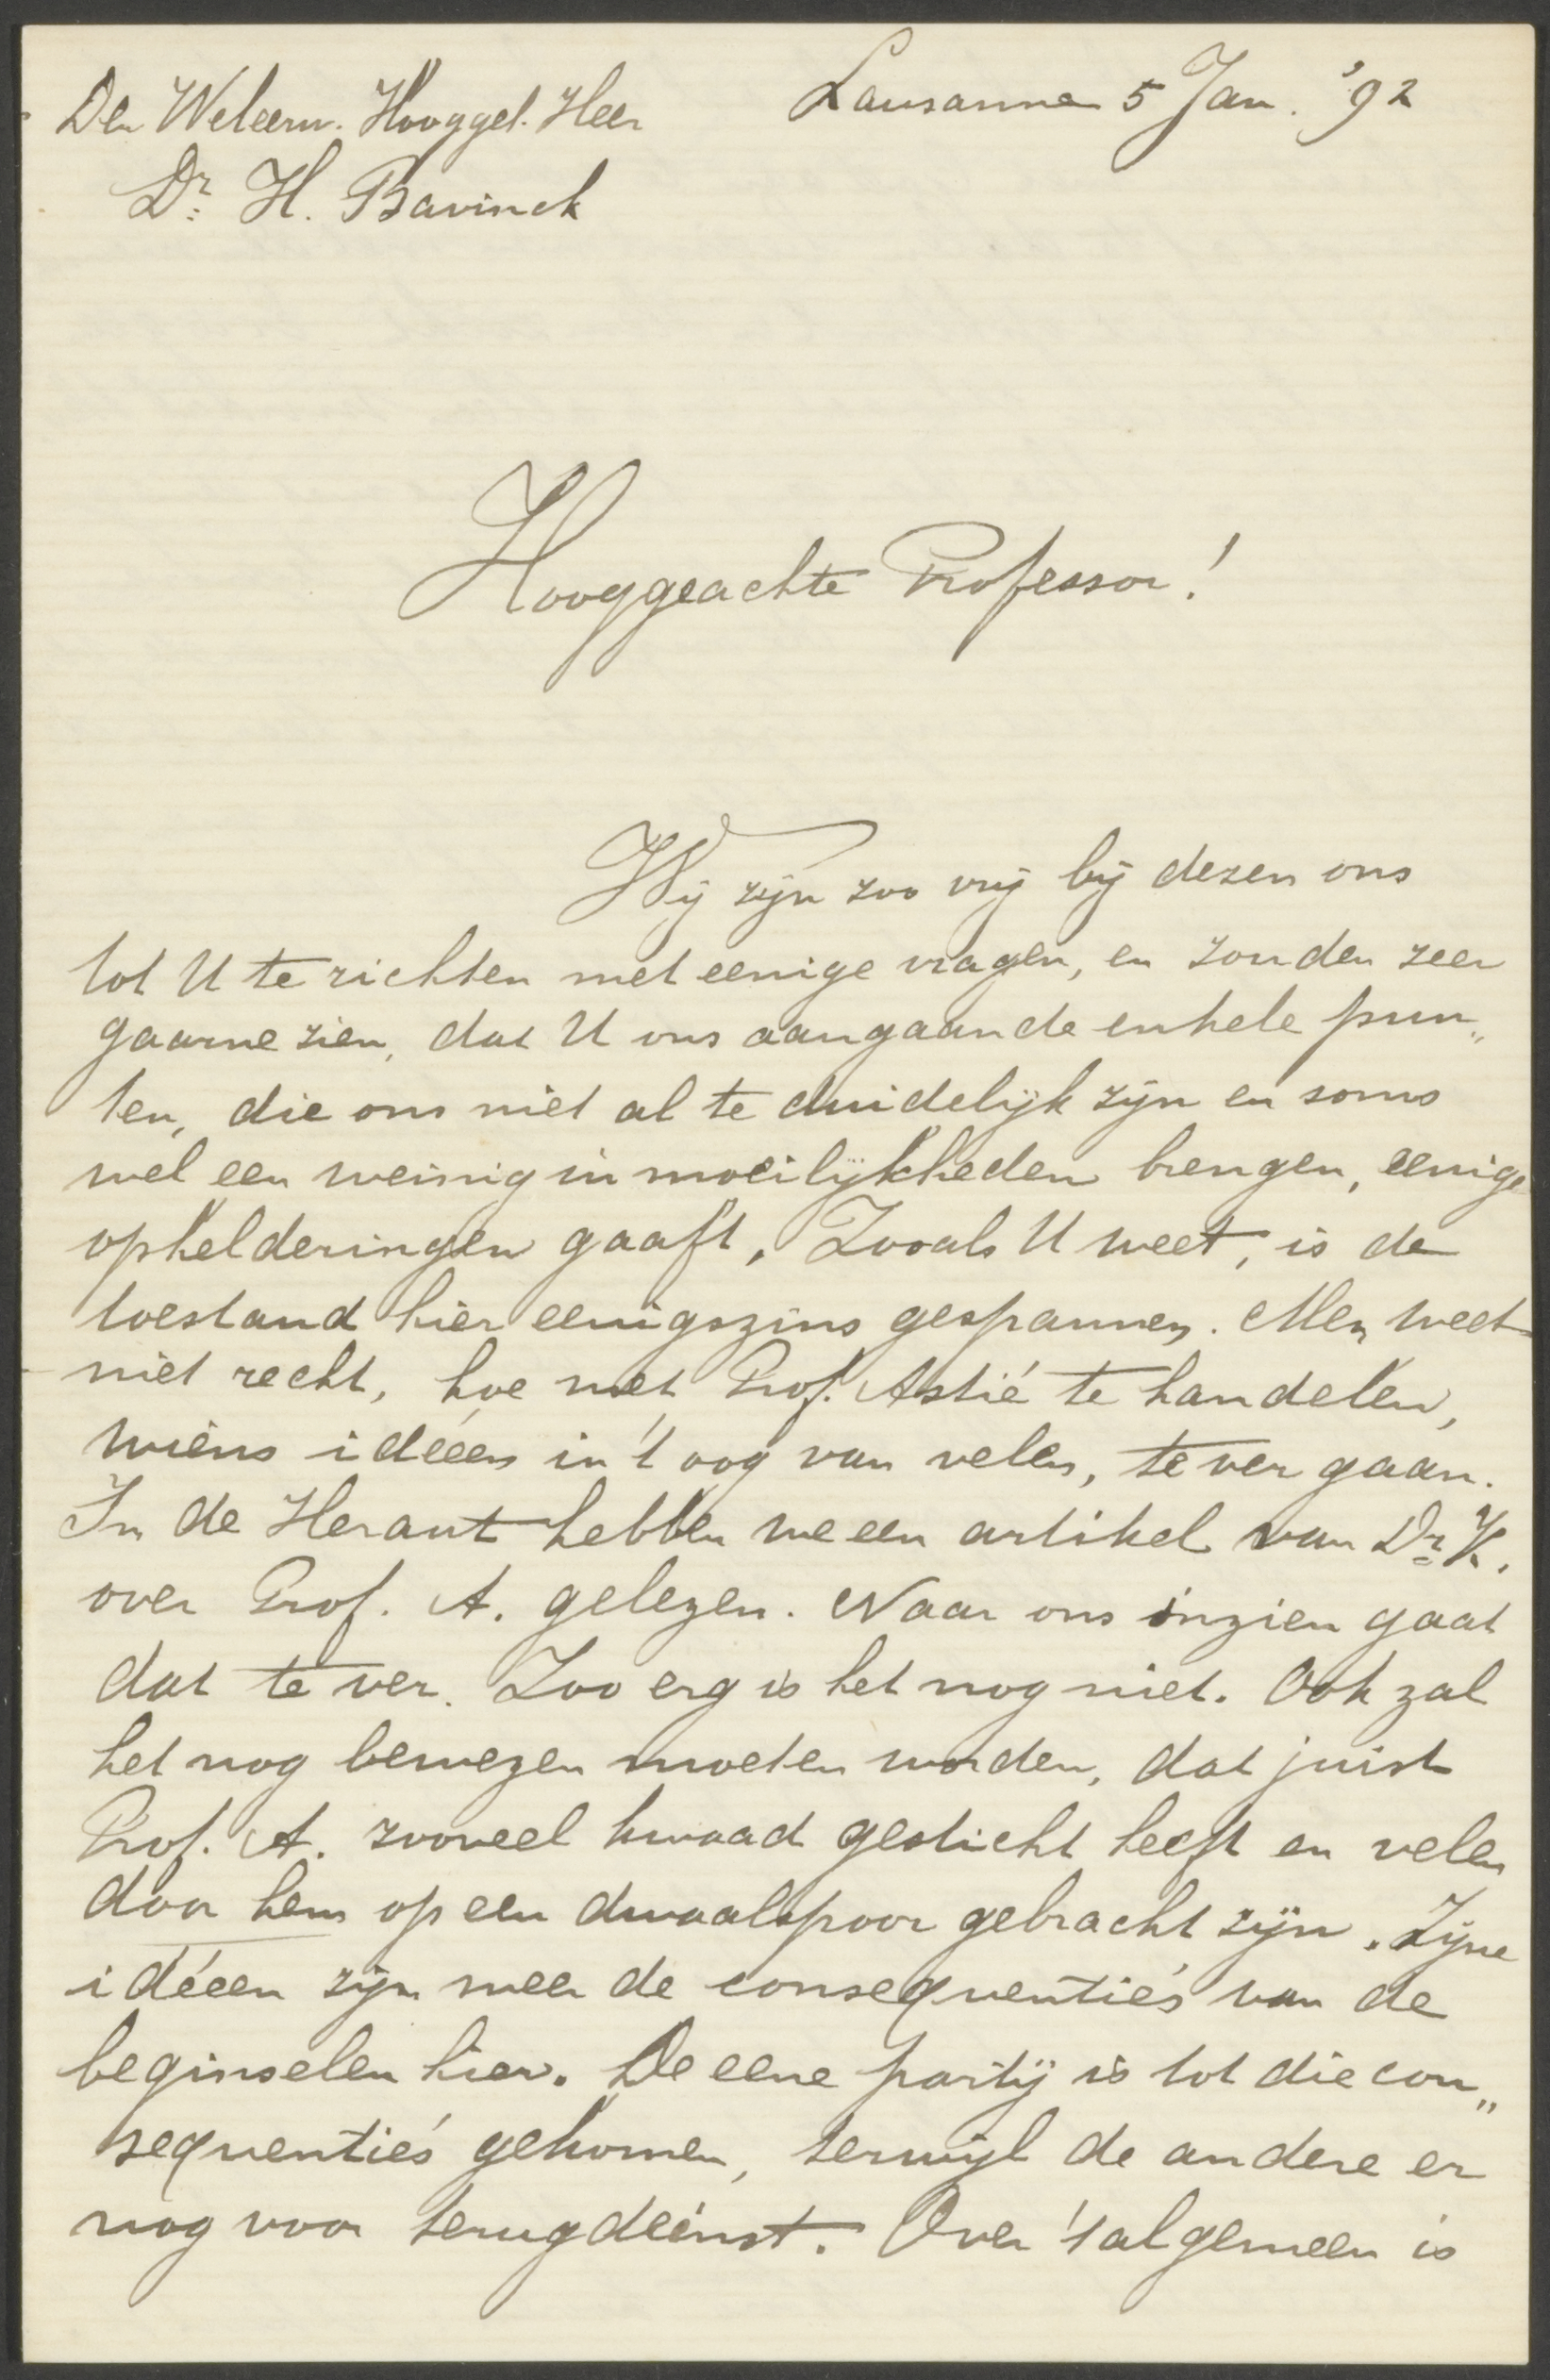 Den Weleerw. Hooggel. Heer
Dr. H. Bavinck
Lausanne 5 Jan. '92
Hooggeachte Professor!
Wij zijn zoo vrij bij dezen ons
tot U te richten met eenige vragen, en zouden zeer
gaarne zien, dat U ons aangaande enkele pun„
ten, die ons niet al te duidelijk zijn en soms
wel een weinig in moeilijkheden brengen, eenige
ophelderingen gaaft. Zooals U weet, is de
toestand hier eenigszins gespannen. Men weet
niet recht, hoe met Prof. Astié te handelen,
wiens idéeen in 't oog van velen, te ver gaan.
In de Heraut hebben we een artikel van Dr. K.
over Prof. A. gelezen. Naar ons inzien gaat
dat te ver. Zoo erg is het nog niet. Ook zal
het nog bewezen moeten worden, dat juist
Prof. A. zooveel kwaad gesticht heeft en velen
door hem op een dwaalspoor gebracht zijn. Zijne
idéeen zijn meer de consequentie's van de
beginselen hier. De eene partij is tot die con„
sequentie's gekomen, terwijl de andere er
nog voor terugdeinst. Over 't algemeen is